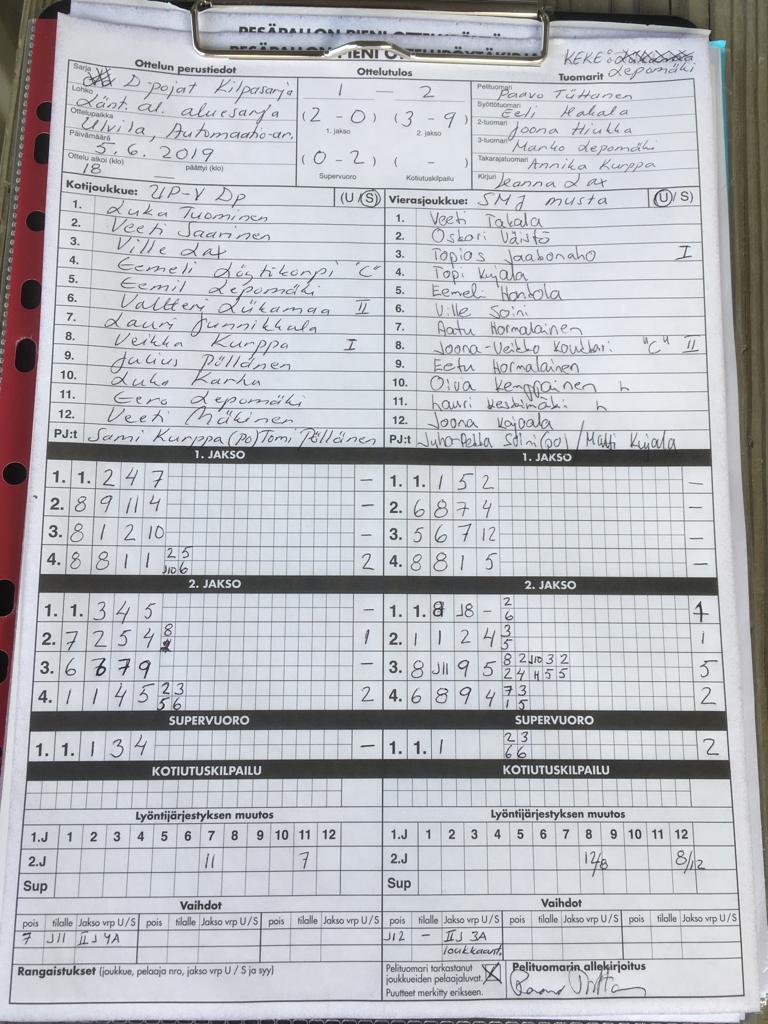 PESÄPALLON PIENI OTTELUPÖYTÄKIRJA
KEKE:
Lepomäki
Ottelun perustiedot
Ottelutulos
Tuomarit
Sarja D-pojat Kilpasarja
Lohko Länt. al. aluesarja
Ottelupaikka Ulvila, Automaatio-ar.
Päivämäärä 5.6. 2019
Ottelu alkoi (klo) 18 päättyi (klo)
1 — 2
(2 - 0) (3 - 9)
1. jakso 2. jakso
(0 - 2) ( - )
Supervuoro Kotiutuskilpailu
Pelituomari Paavo
Syöttötuomari Eeli Hakala
2-tuomari Joona Hiukka
3-tuomari Marko Lepomäki
Takarajatuomari Annika Kurppa
Kirjuri Jeanna Lax
Kotijoukkue: UP-V Dp (U/S)
1. Luka Tuominen
2. Veeti Saarinen
3. Ville Lax
4. Eemeli Löytikorpi "C"
5. Eemil Lepomäki
6. Valtteri Liikamaa II
7. Lauri Junnikkala
8. Veikka Kurppa I
9. Julius Pöllänen
10. Luka Karha
11. Eero Lepomäki
12. Veeti Mäkinen
PJ:t Sami Kurppa (po) Tomi Pöllänen
Vierasjoukkue: SMJ musta (U/S)
1. Veeti Takala
2. Oskari Väistö
3. Topias Jaabonaho I
4. Topi Kujala
5. Eemeli Hantola
6. Ville Soini
7. Aatu Hormalainen
8. Joona-Veikko "C" II
9. Eetu Hormalainen
10. Oiva Kemppainen h
11. Lauri Keskimäki h
12. Joona Kojpala
PJ:t Juha-Pekka Soini (po) / Matti Kujala
1. JAKSO
1. 1. 2 4 7 –
2. 8 9 11 4 –
3. 8 1 2 10 –
4. 8 8 1 1 2 5 J10 6 2
1. JAKSO
1. 1. 1 5 2 –
2. 6 8 7 4 –
3. 5 6 7 12 –
4. 8 8 1 5 –
2. JAKSO
1. 1. 3 4 5 –
2. 7 2 5 4 8 1
3. 6 7 9 –
4. 1 1 4 5 2 3 5 6 2
2. JAKSO
1. 1. 8 J8 – 2 6 1
2. 1 1 2 4 3 5 1
3. 8 J11 9 5 8 2 J10 3 2 2 4 H 5 5 5
4. 6 8 9 4 7 3 1 5 2
SUPERVUORO
1. 1. 1 3 4 –
SUPERVUORO
1. 1. 1 2 3 6 6 2
KOTIUTUSKILPAILU
KOTIUTUSKILPAILU
Lyöntijärjestyksen muutos
1.J 1 2 3 4 5 6 7 8 9 10 11 12
2.J 11 7
Sup
Lyöntijärjestyksen muutos
1.J 1 2 3 4 5 6 7 8 9 10 11 12
2.J 12/8 8/12
Sup
Vaihdot
pois tilalle Jakso vrp U/S pois tilalle Jakso vrp U/S pois tilalle Jakso vrp U/S
7 J11 IIJ 4A
Vaihdot
pois tilalle Jakso vrp U/S pois tilalle Jakso vrp U/S pois tilalle Jakso vrp U/S
J12 – IIJ 3A
loukkaant.
Rangaistukset (joukkue, pelaaja nro, jakso vrp U / S ja syy)
Pelituomari tarkastanut
joukkueiden pelaajaluvat. X
Puutteet merkitty erikseen.
Pelituomarin allekirjoitus